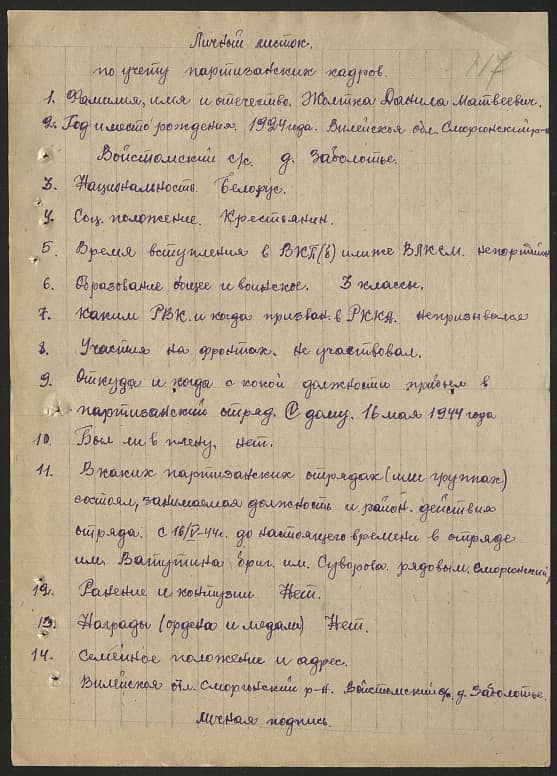 Личный листок.
№7
по учету партизанских кадров.
1. Фамилия, имя и отечество. Жолтка Данила Матвеевич.
2. Год и место рождения. 1924 года. Вилейская обл. Сморгонский р-н
Войстомский с/с. д. Заболотье.
3. Национальность. Белорус.
4. Соц. положение. Крестьянин.
5. Время вступления в ВКП(б) или же ВЛКСМ. непартийн
6. Образование общее и воинское. 3 классы.
7. Каким РВК. и когда призван. в РККА. непризывался
8. Участия на фронтах. не участвовал.
9. Откуда и когда с какой должности прибыл в
партизанский отряд. С дому. 16 мая 1944 года
10. Был ли в плену. нет.
11. В каких партизанских отрядах (или группах)
состоял, занимаемая должность и район. действия
отряда. с 16/V-44г. до настоящего времени в отряде
им. Ватутина бриг. им. Суворова. рядовым. Сморгонский
12. Ранение и контузии Нет.
13. Награды (ордена и медали) Нет.
14. Семейное положение и адрес.
Вилейская обл. Сморгонский р-н. Войстомский с/с. д. Заболотье.
личная подпись.